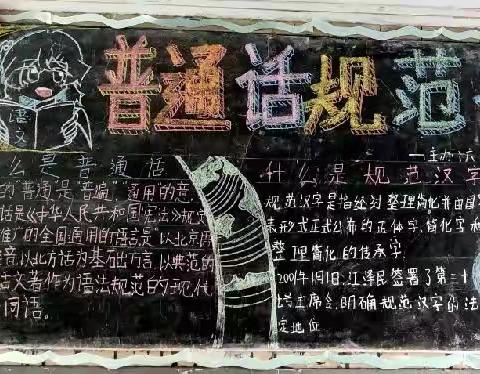 普通话规范
语文
什么是普通话
的"普通"是"普遍"通用的意
话是《中华人民共和国宪法》规定
准)的全国通用的语言是"以北京
音以北方话为基础方言,以典范的
文著作为语法规范的现代
同语。
一主办
什么是规范汉字
规范汉字是指经过整理简化并由国
表形式正式公布的正体字,简化字和
整理简化的传承字
2001年1月1日,江泽民签署了第三十
主席令,明确规范汉字的法
定地位